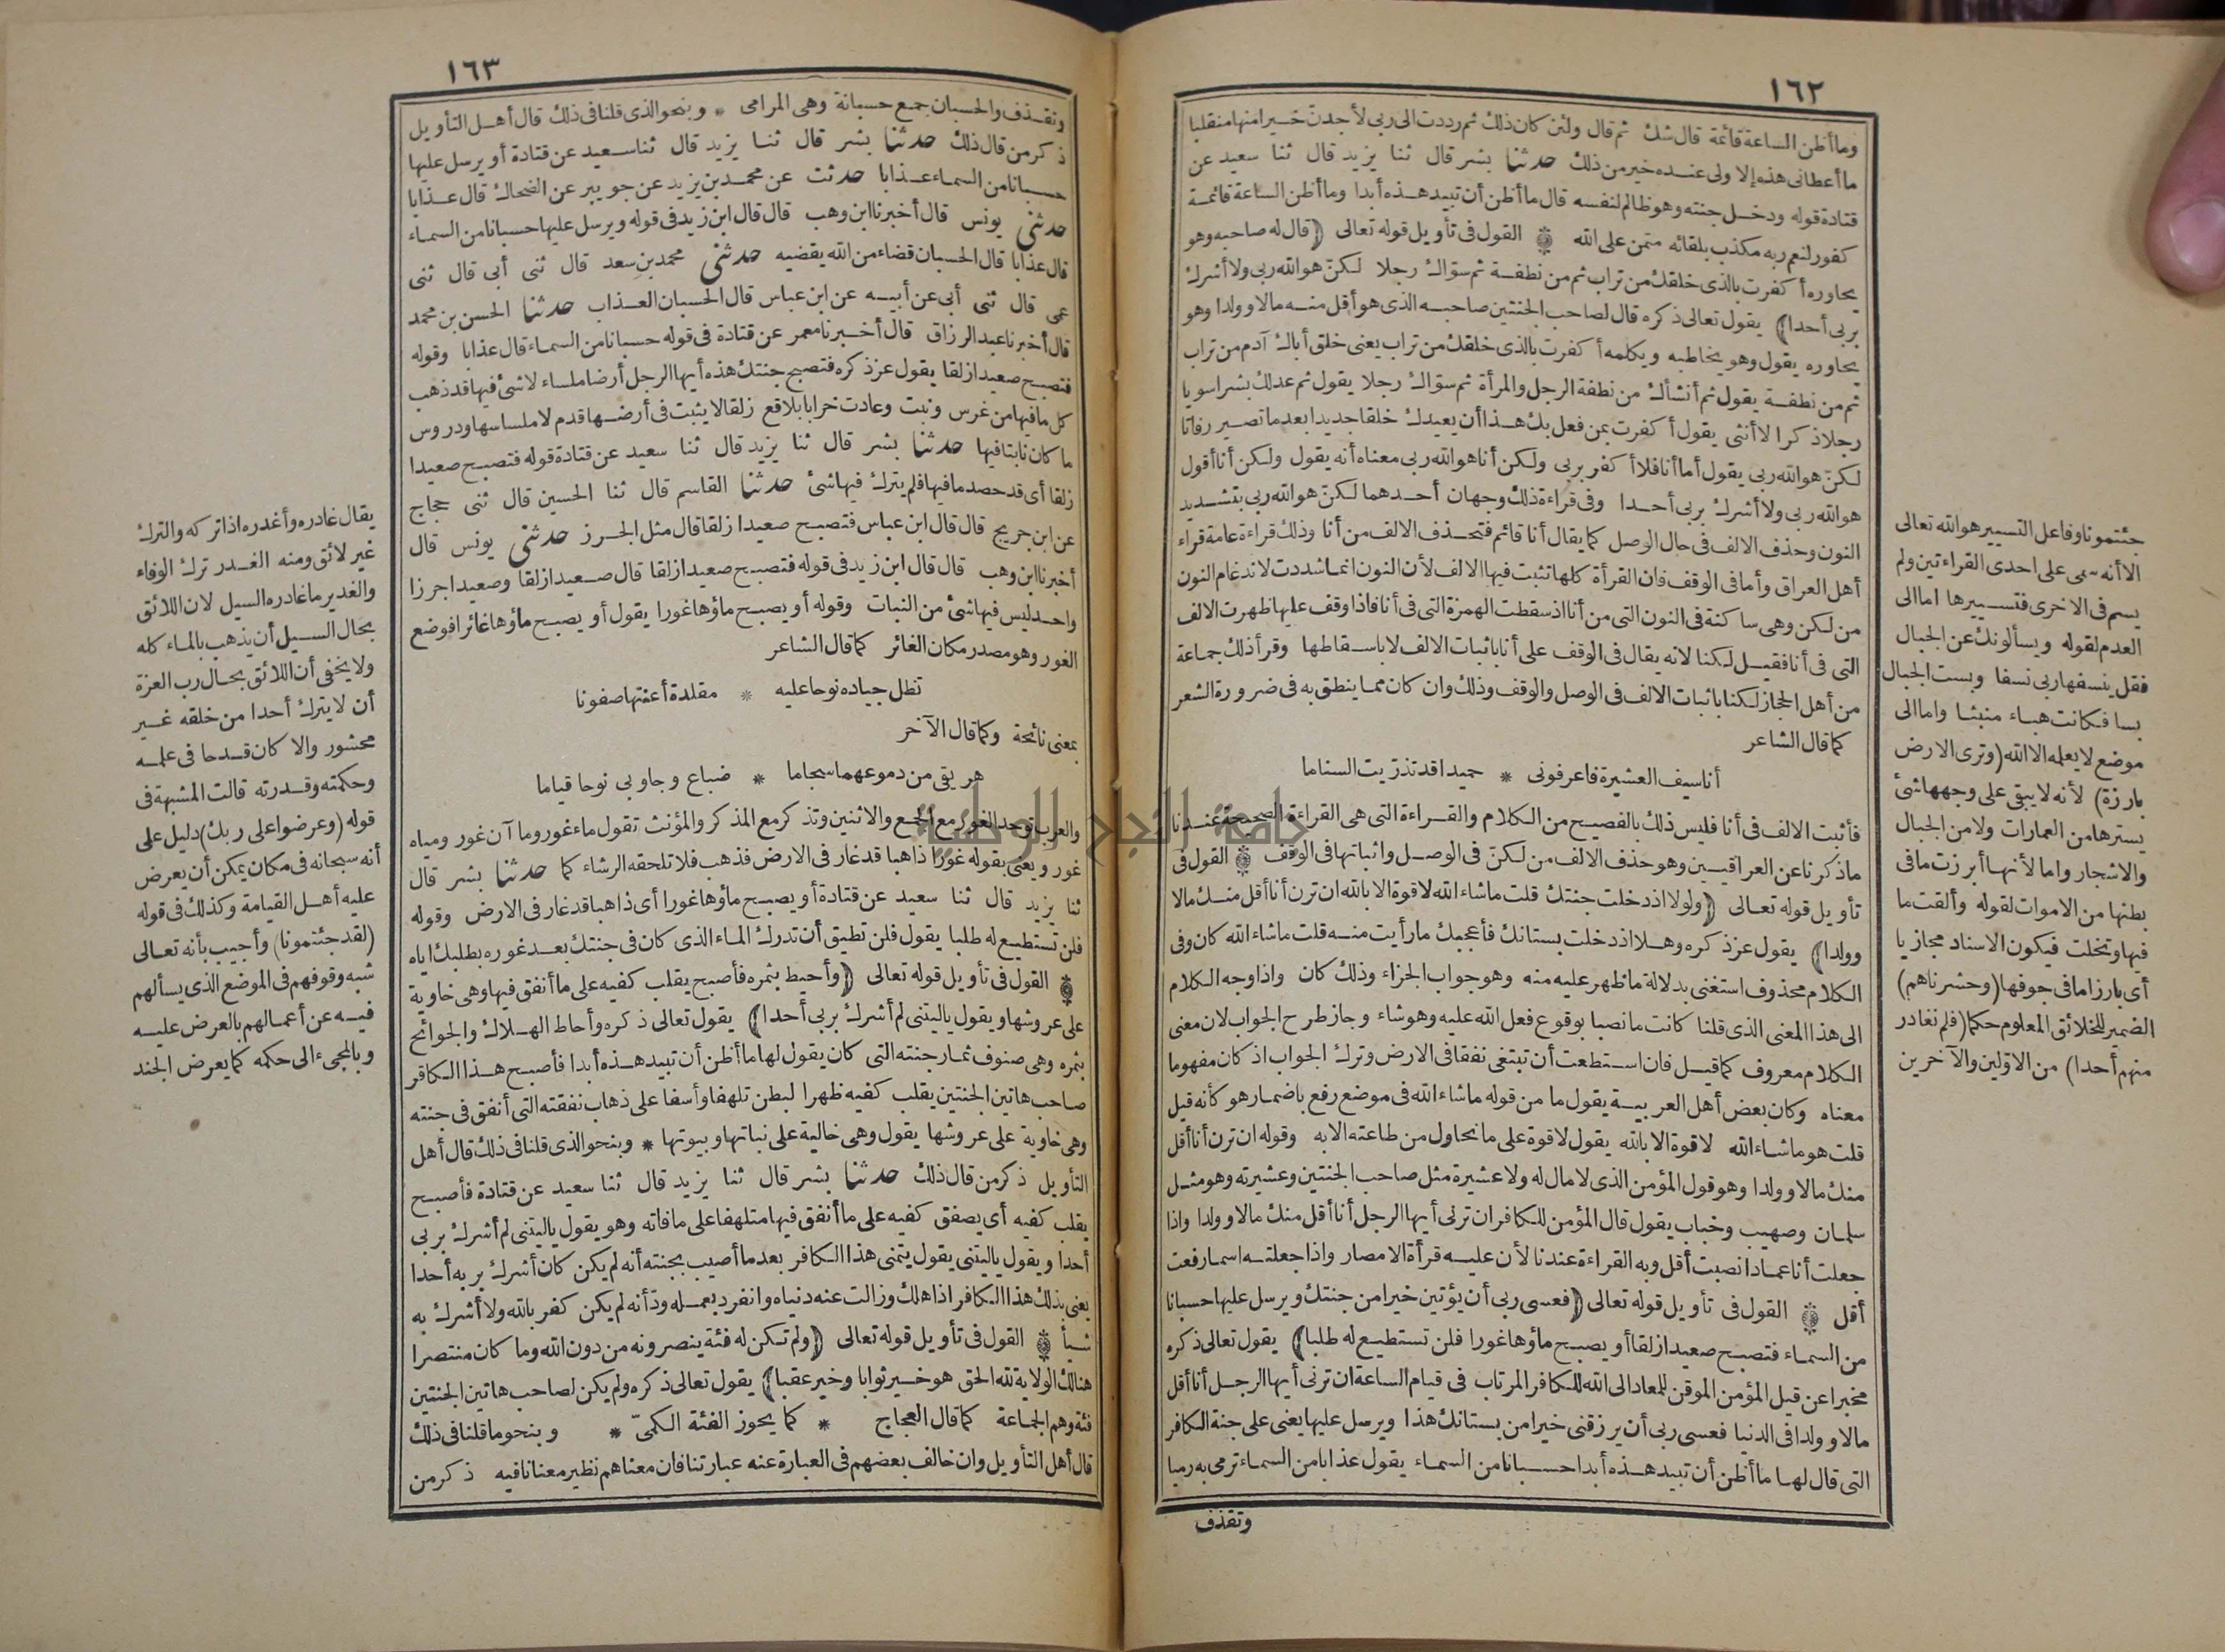 ١٦٢
وما أظن الساعة قائمة قال شك ثم قال ولئن كان ذلك ثم رددت الى ربى لأجدن خيرا منها منقلبا
ما أعطانى هذه إلا ولى عنده خير من ذلك حدثنا بشر قال ثنا يزيد قال ثنا سعيد عن
قتادة قوله ودخل جنته وهو ظالم لنفسه قال ما أظن أن تبيد هذه أبدا وما أظن الساعة قائمة
كفور لنعم ربه مكذب بلقائه متمن على الله ۞ القول فى تأويل قوله تعالى (قال له صاحبه وهو
يحاوره أكفرت بالذى خلقك من تراب ثم من نطفة ثم سوّاك رجلا لكنّ هو الله ربى ولا أشرك
بربى أحدا) يقول تعالى ذكره قال لصاحب الجنتين صاحبه الذى هو أقل منه مالا وولدا وهو
يحاوره يقول وهو يخاطبه ويكلمه أكفرت بالذى خلقك من تراب يعنى خلق أباك آدم من تراب
ثم من نطفة يقول ثم أنشأك من نطفة الرجل والمرأة ثم سوّاك رجلا يقول ثم عدلك بشرا سويا
رجلا ذكرا لا أنثى يقول أكفرت بمن فعل بك هذا أن يعيدك خلقا جديدا بعد ما تصير رفاتا
لكنّ هو الله ربى يقول أما أنا فلا أكفر بربى ولكن أنا هو الله ربى معناه أنه يقول ولكن أنا أقول
هو الله ربى ولا أشرك بربى أحدا وفى قراءة ذلك وجهان أحدهما لكنّ هو الله ربى بتشديد
النون وحذف الالف فى حال الوصل كما يقال أنا قائم فتحذف الالف من أنا وذلك قراءة عامة قراء
أهل العراق وأما فى الوقف فان القرأة كلها تثبت فيها الالف لأن النون انما شددت لاندغام النون
من لكن وهى ساكنة فى النون التى من أنا اذ سقطت الهمزة التى فى أنا فاذا وقف عليها ظهرت الالف
التى فى أنا فقيل لكنا لانه يقال فى الوقف على أنا باثبات الالف لا باسقاطها وقرأ ذلك جماعة
من أهل الحجاز لكنا باثبات الالف فى الوصل والوقف وذلك وان كان مما ينطق به فى ضرورة الشعر
كما قال الشاعر
أنا سيف العشيرة فاعرفونى * حميدا قد تذرّيت السناما
فأثبت الالف فى أنا فليس ذلك بالفصيح من الكلام والقراءة التى هى القراءة الصحيحة عندنا
ما ذكرنا عن العراقيين وهو حذف الالف من لكنّ فى الوصل واثباتها فى الوقف ۞ القول فى
تأويل قوله تعالى (ولولا اذ دخلت جنتك قلت ما شاء الله لا قوة الا بالله ان ترن أنا أقل منك مالا
وولدا) يقول عز ذكره وهلا اذ دخلت بستانك فأعجبك ما رأيت منه قلت ما شاء الله كان وفى
الكلام محذوف استغنى بدلالة ما ظهر عليه منه وهو جواب الجزاء وذلك كان واذا وجه الكلام
الى هذا المعنى الذى قلنا كانت ما نصبا بوقوع فعل الله عليه وهو شاء وجاز طرح الجواب لان معنى
الكلام معروف كما قيل فان استطعت أن تبتغى نفقا فى الارض وترك الجواب اذ كان مفهوما
معناه وكان بعض أهل العربية يقول ما من قوله ما شاء الله فى موضع رفع باضمار هو كأنه قيل
قلت هو ما شاء الله لا قوة الا بالله يقول لا قوة على ما نحاول من طاعته الا به وقوله ان ترن أنا أقل
منك مالا وولدا وهو قول المؤمن الذى لا مال له ولا عشيرة مثل صاحب الجنتين وعشيرته وهو مثل
سلمان وصهيب وخباب يقول قال المؤمن للكافر ان ترنى أيها الرجل أنا أقل منك مالا وولدا واذا
جعلت أنا عمادا نصبت أقل وبه القراءة عندنا لأن عليه قرأة الامصار واذا جعلته اسما رفعت
أقل ۞ القول فى تأويل قوله تعالى (فعسى ربى أن يؤتين خيرا من جنتك ويرسل عليها حسبانا
من السماء فتصبح صعيدا زلقا أو يصبح ماؤها غورا فلن تستطيع له طلبا) يقول تعالى ذكره
مخبرا عن قيل المؤمن الموقن للمعاد الى الله للكافر المرتاب فى قيام الساعة ان ترنى أيها الرجل أنا أقل
مالا وولدا فى الدنيا فعسى ربى أن يرزقنى خيرا من بستانك هذا ويرسل عليها يعنى على جنة الكافر
التى قال لها ما أظن أن تبيد هذه أبدا حسبانا من السماء يقول عذابا من السماء ترمى به رميا
وتقذف
جئتمونا وفاعل التسيير هو الله تعالى
الا أنه سمى على احدى القراءتين ولم
يسم فى الاخرى فتسييرها اما الى
العدم لقوله ويسألونك عن الجبال
فقل ينسفها ربى نسفا وبست الجبال
بسا فكانت هباء منبثا واما الى
موضع لا يعلمه الا الله (وترى الارض
بارزة) لأنه لا يبقى على وجهها شئ
يسترها من العمارات ولا من الجبال
والاشجار واما لأنها أبرزت ما فى
بطنها من الاموات لقوله وألقت ما
فيها وتخلت فيكون الاسناد مجازيا
أى بارزا ما فى جوفها (وحشرناهم)
الضمير للخلائق المعلوم حكما (فلم نغادر
منهم أحدا) من الاوّلين والآخرين
١٦٣
وتقذف والحسبان جمع حسبانة وهى المرامى * وبنحو الذى قلنا فى ذلك قال أهل التأويل
ذكر من قال ذلك حدثنا بشر قال ثنا يزيد قال ثنا سعيد عن قتادة أو يرسل عليها
حسبانا من السماء عذابا حدثت عن محمد بن يزيد عن جويبر عن الضحاك قال عذابا
حدثنى يونس قال أخبرنا ابن وهب قال قال ابن زيد فى قوله ويرسل عليها حسبانا من السماء
قال عذابا قال الحسبان قضاء من الله يقضيه حدثنى محمد بن سعد قال ثنى أبى قال ثنى
عمى قال ثنى أبى عن أبيه عن ابن عباس قال الحسبان العذاب حدثنا الحسن بن محمد
قال أخبرنا عبد الرزاق قال أخبرنا معمر عن قتادة فى قوله حسبانا من السماء قال عذابا وقوله
فتصبح صعيدا زلقا يقول عز ذكره فتصبح جنتك هذه أيها الرجل أرضا ملساء لا شئ فيها قد ذهب
كل ما فيها من غرس ونبت وعادت خرابا بلاقع زلقا لا يثبت فى أرضها قدم لاملساسها ودروس
ما كان نابتا فيها حدثنا بشر قال ثنا يزيد قال ثنا سعيد عن قتادة قوله فتصبح صعيدا
زلقا أى قد حصد ما فيها فلم يترك فيها شئ حدثنا القاسم قال ثنا الحسين قال ثنى حجاج
عن ابن جريج قال قال ابن عباس فتصبح صعيدا زلقا قال مثل الجرز حدثنى يونس قال
أخبرنا ابن وهب قال قال ابن زيد فى قوله فتصبح صعيدا زلقا قال صعيدا زلقا وصعيدا جرزا
واحد ليس فيها شئ من النبات وقوله أو يصبح ماؤها غورا يقول أو يصبح ماؤها غائرا فوضع
الغور وهو مصدر مكان الغائر كما قال الشاعر
تظل جياده نوحا عليه * مقلدة أعنتها صفونا
بمعنى نائحة وكما قال الآخر
هريقى من دموعهما سجاما * ضباع وجاوبى نوحا قياما
والعرب توحد الغور مع الجمع والاثنين وتذكر مع المذكر والمؤنث تقول ماء غور وما آن غور ومياه
غور ويعنى بقوله غورا ذاهبا قد غار فى الارض فذهب فلا تلحقه الرشاء كما حدثنا بشر قال
ثنا يزيد قال ثنا سعيد عن قتادة أو يصبح ماؤها غورا أى ذاهبا قد غار فى الارض وقوله
فلن تستطيع له طلبا يقول فلن تطيق أن تدرك الماء الذى كان فى جنتك بعد غوره بطلبك اياه
۞ القول فى تأويل قوله تعالى (وأحيط بثمره فأصبح يقلب كفيه على ما أنفق فيها وهى خاوية
على عروشها ويقول ياليتنى لم أشرك بربى أحدا) يقول تعالى ذكره وأحاط الهلاك والجوائح
بثمره وهى صنوف ثمار جنته التى كان يقول لها ما أظن أن تبيد هذه أبدا فأصبح هذا الكافر
صاحب هاتين الجنتين يقلب كفيه ظهرا لبطن تلهفا وأسفا على ذهاب نفقته التى أنفق فى جنته
وهى خاوية على عروشها يقول وهى خالية على نباتها وبيوتها * وبنحو الذى قلنا فى ذلك قال أهل
التأويل ذكر من قال ذلك حدثنا بشر قال ثنا يزيد قال ثنا سعيد عن قتادة فأصبح
يقلب كفيه أى يصفق كفيه على ما أنفق فيها متلهفا على ما فاته وهو يقول ياليتنى لم أشرك بربى
أحدا ويقول ياليتنى يقول يتمنى هذا الكافر بعد ما أصيب بجنته أنه لم يكن كان أشرك بربه أحدا
يعنى بذلك هذا الكافر اذا هلك وزالت عنه دنياه وانفرد بعمله ودّ أنه لم يكن كفر بالله ولا أشرك به
شيأ ۞ القول فى تأويل قوله تعالى (ولم تكن له فئة ينصرونه من دون الله وما كان منتصرا
هنالك الولاية لله الحق هو خير ثوابا وخير عقبا) يقول تعالى ذكره ولم يكن لصاحب هاتين الجنتين
فئة وهم الجماعة كما قال العجاج * كما يحوز الفئة الكمىّ * وبنحو ما قلنا فى ذلك
قال أهل التأويل وان خالف بعضهم فى العبارة عنه عبارتنا فان معناهم نظير معنانا فيه ذكر من
يقال غادره وأغدره اذا تركه والترك
غير لائق ومنه الغدر ترك الوفاء
والغدير ما غادره السيل لان اللائق
بحال السيل أن يذهب بالماء كله
ولا يخفى أن اللائق بحال رب العزة
أن لا يترك أحدا من خلقه غير
محشور والا كان قدحا فى علمه
وحكمته وقدرته قالت المشبهة فى
قوله (وعرضوا على ربك) دليل على
أنه سبحانه فى مكان يمكن أن يعرض
عليه أهل القيامة وكذلك فى قوله
(لقد جئتمونا) وأجيب بأنه تعالى
شبه وقوفهم فى الموضع الذى يسألهم
فيه عن أعمالهم بالعرض عليه
وبالمجىء الى حكمه كما يعرض الجند
جامعة النجاح الوطنية